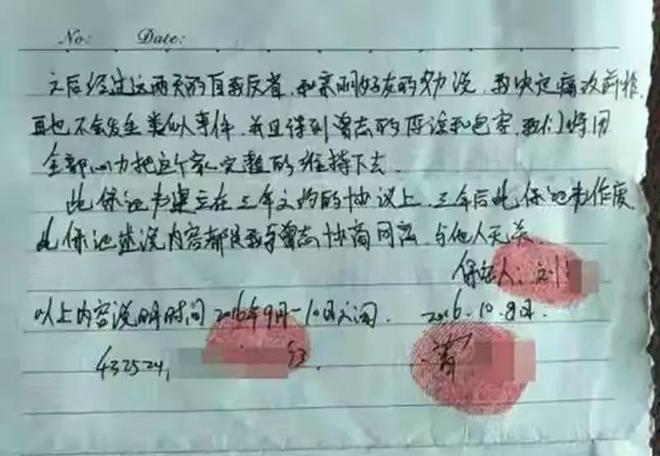 No: Date:
之后经过这两天的自我反省，和亲朋好友的劝说，我决定痛改前非，
再也不会发生类似事件，并且得到曾志的原谅和包容，我们将用
全部心力把这个家完整的维持下去。
此保证书建立在三年之约的协议上，三年后此保证书作废
此保证述说内容都是我与曾志协商同意，与他人无关。
保证人：刘
以上内容说明时间2016年9月-10月之间. 2016.10.8日.
432524,